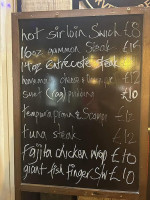 hot sirloin Swich £8
16oz gammon steak £15
14oz entrecote steak
£10
tempura prawn & Scampi £12
tuna steak £12
fajita chicken wrap £10
giant fish finger SW £10